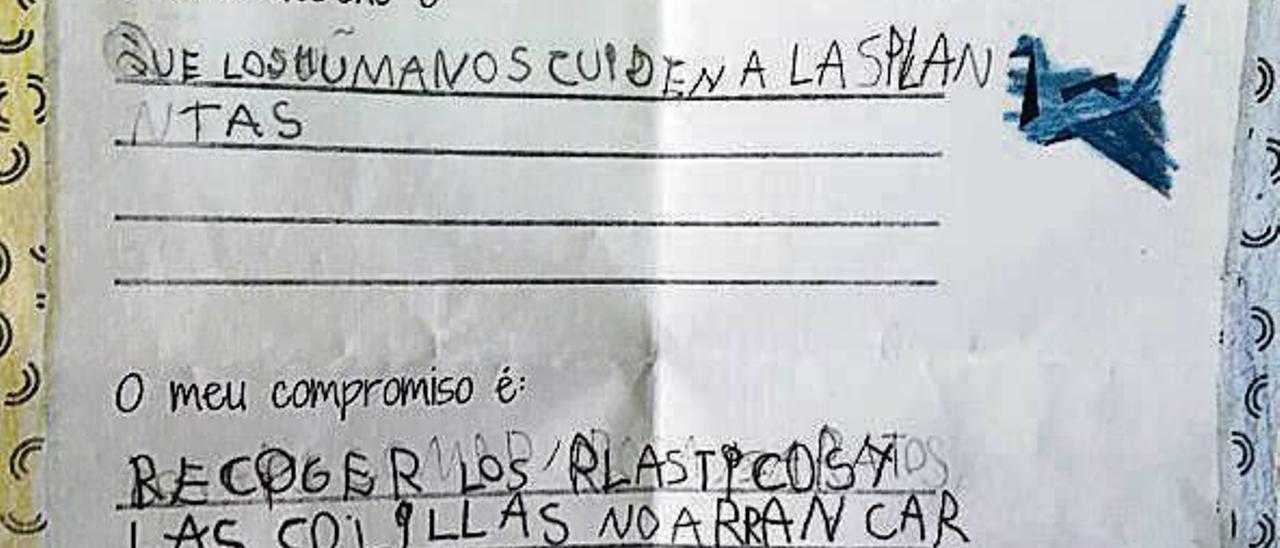 QUE LOS HUMANOS CUIDEN A LAS PLAN
NTAS
O meu compromiso é:
RECOGER LOS PLASTICOS Y
LAS COLILLAS NO ARRANCAR